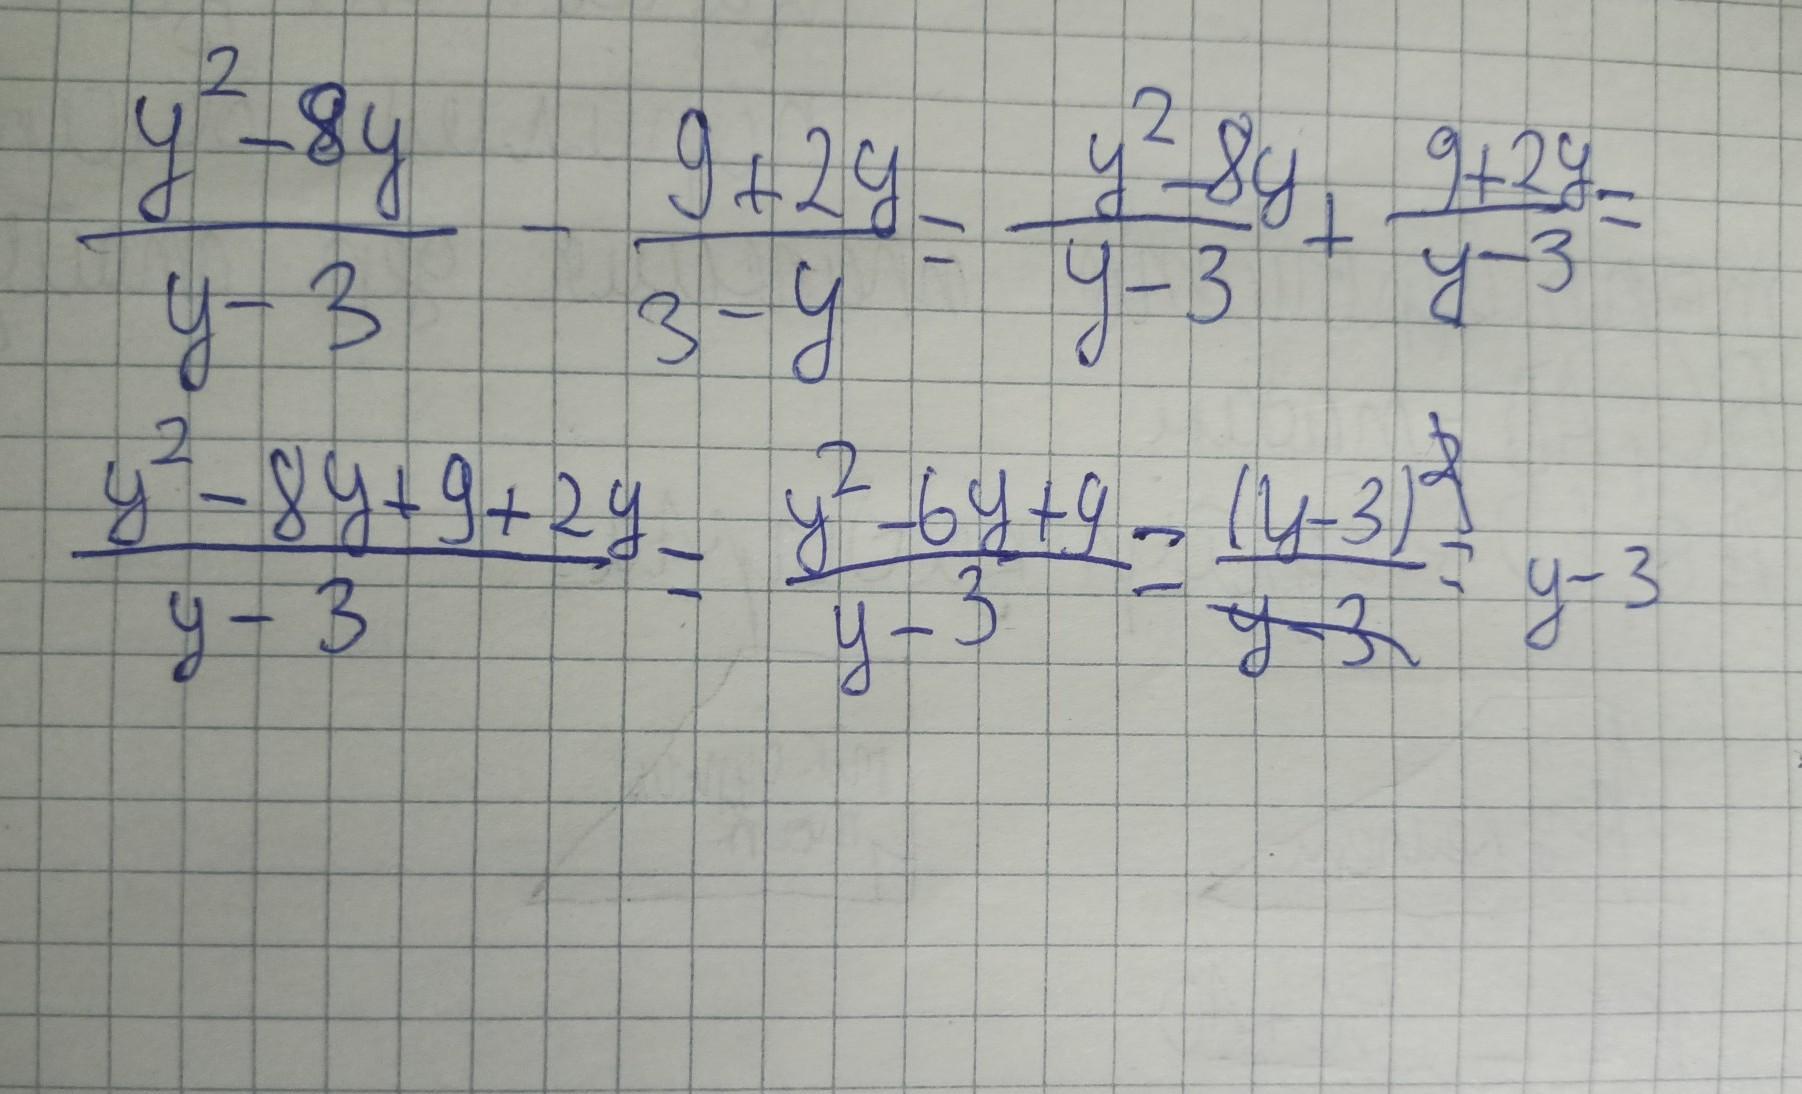 (y² - 8y)/(y - 3) - (9 + 2y)/(3 - y) = (y² - 8y)/(y - 3) + (9 + 2y)/(y - 3) =
(y² - 8y + 9 + 2y)/(y - 3) = (y² - 6y + 9)/(y - 3) = (y - 3)²/(y - 3) = y - 3